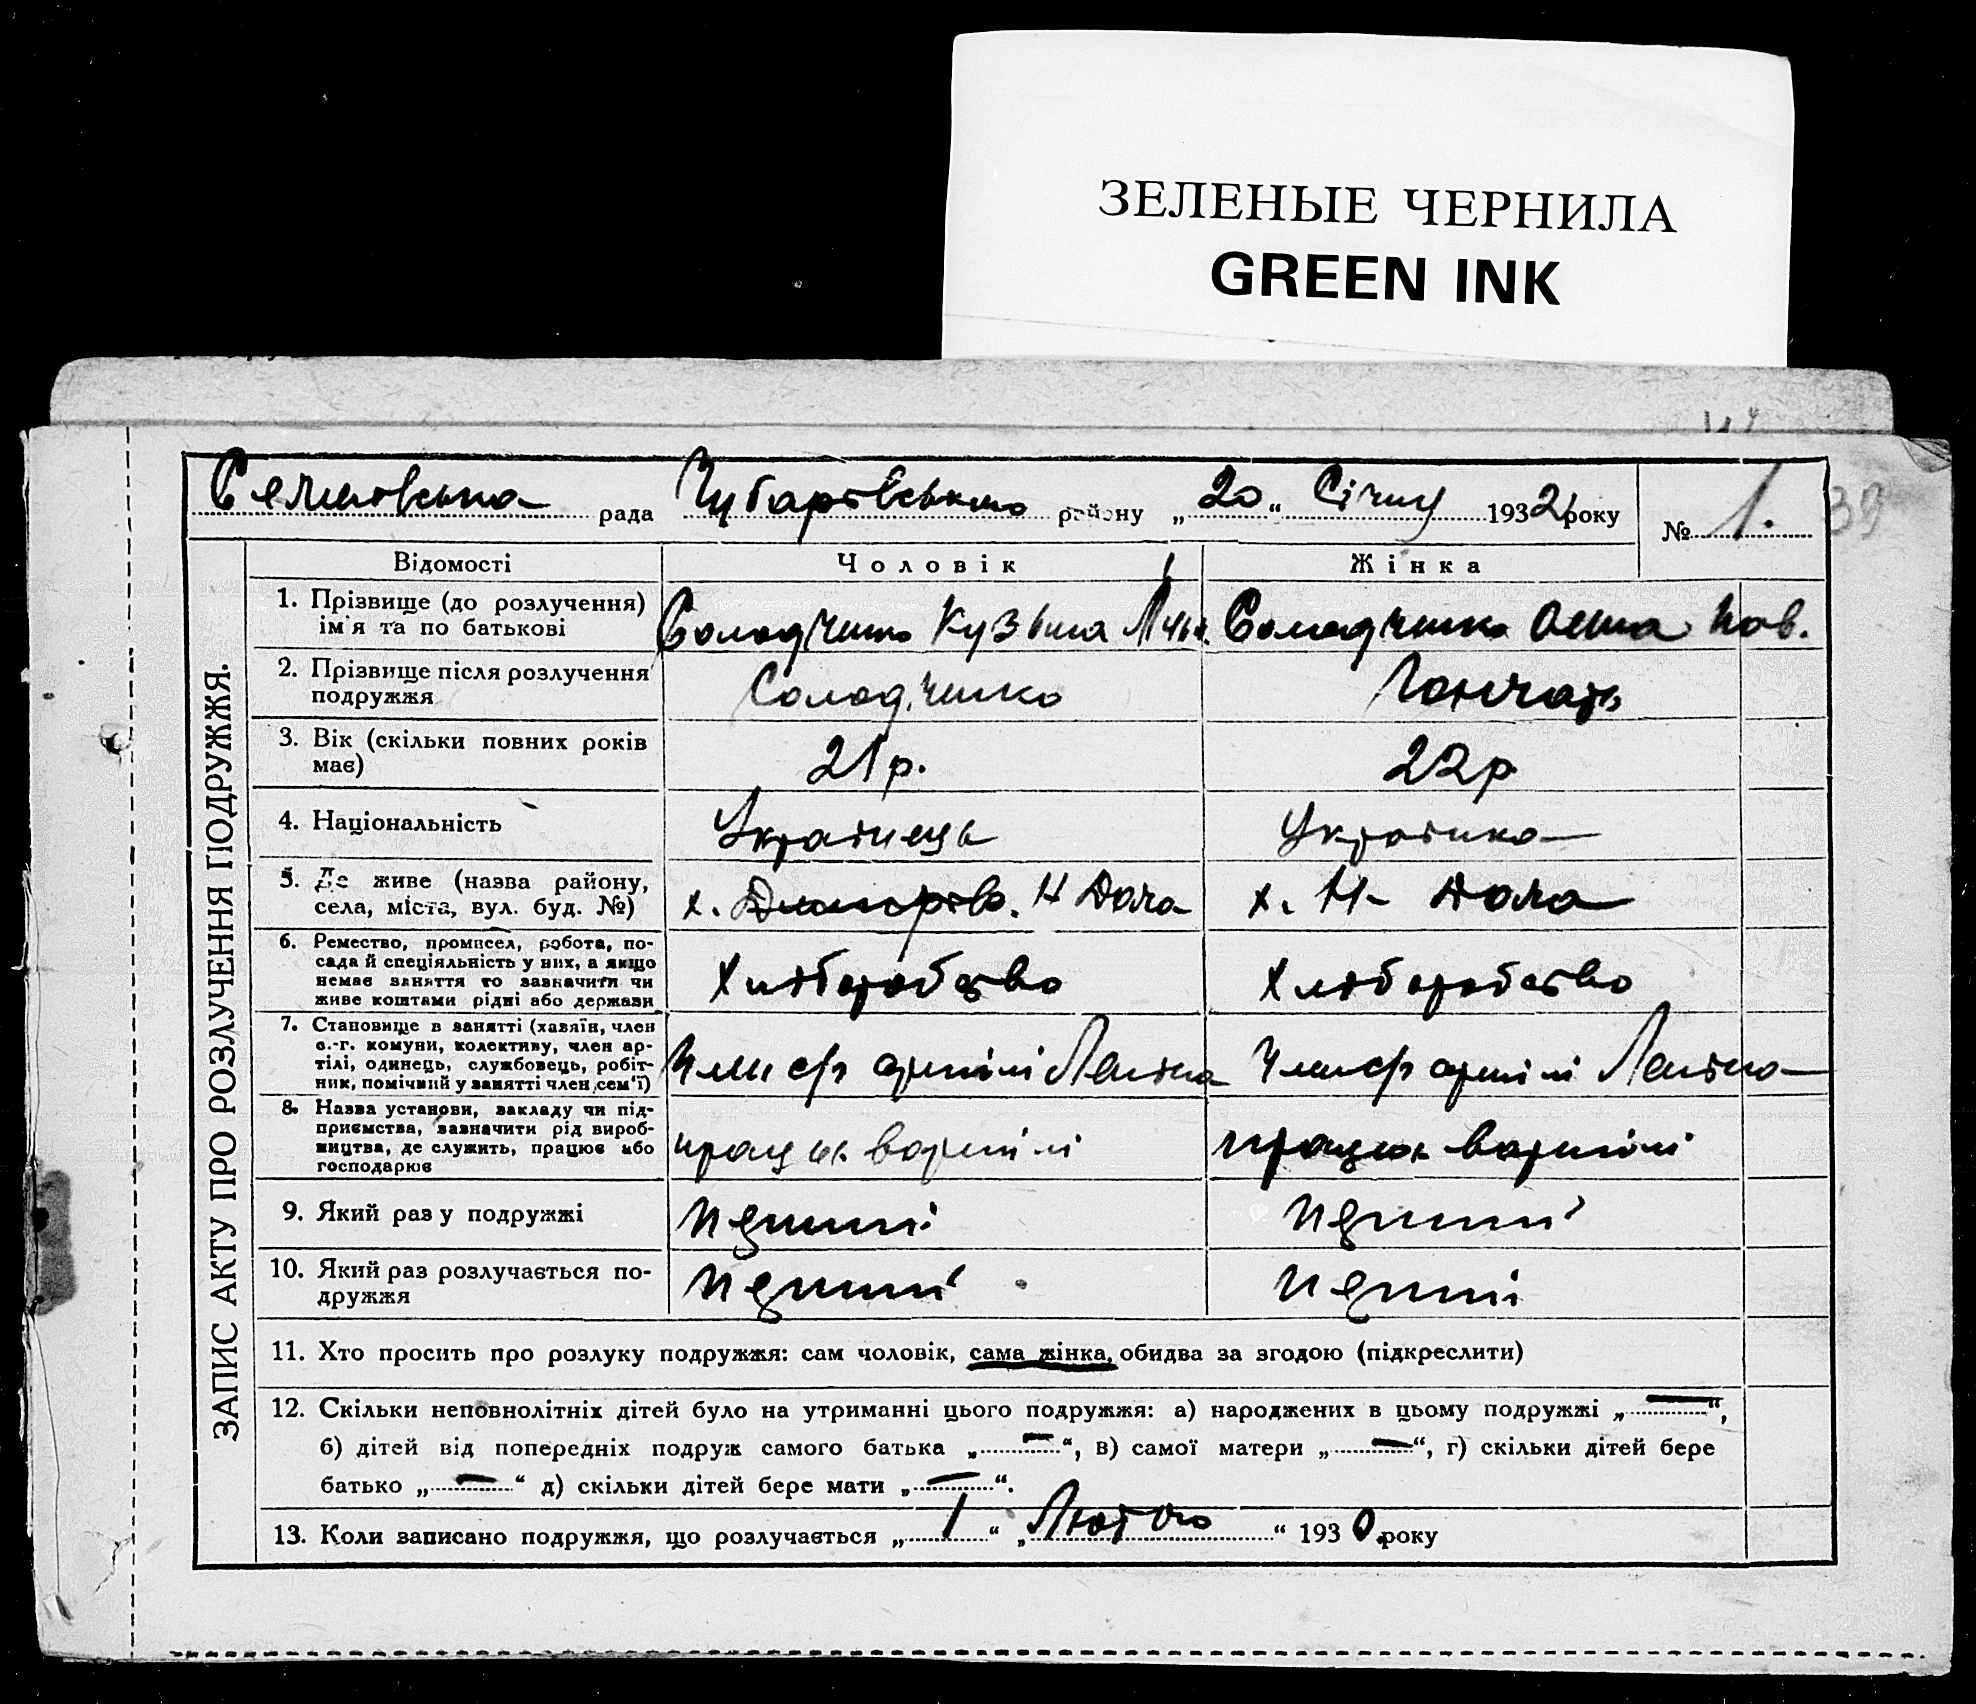 ЗЕЛЕНЫЕ ЧЕРНИЛА
GREEN INK
рада Чубарівського району „20“ Січня 1932 року № 1. 39
ЗАПИС АКТУ ПРО РОЗЛУЧЕННЯ ПОДРУЖЖЯ.
Відомості Чоловік Жінка
1. Прізвище (до розлучення)
ім'я та по батькові
Солодченко Кузьма
Солодченко Пав.
2. Прізвище після розлучення
подружжя
Солодченко
Гончар
3. Вік (скільки повних років
має)
21 р.
22 р
4. Національність
Українець
Українка
5. Де живе (назва району,
села, міста, вул. буд. №)
х. Н Дача
х. Н- Дача
6. Ремество, промисел, робота, по-
сада й спеціяльність у них, а якщо
немає заняття то зазначити чи
живе коштами рідні або держави
Хліборобство
Хліборобство
7. Становище в занятті (хазяїн, член
с.-г. комуни, колективу, член ар-
тілі, одинець, службовець, робіт-
ник, помічний у занятті член сем'ї)
Член с/г артілі Леніна
Член с/г артілі Леніна
8. Назва установи, закладу чи під-
приємства, зазначити рід вироб-
ництва, де служить, працює або
господарює
працює в артілі
працює в артілі
9. Який раз у подружжі
перший
перший
10. Який раз розлучається по-
дружжя
перший
перший
11. Хто просить про розлуку подружжя: сам чоловік, сама жінка, обидва за згодою (підкреслити)
12. Скільки неповнолітніх дітей було на утриманні цього подружжя: а) народжених в цьому подружжі „—“,
б) дітей від попередніх подруж самого батька „—“, в) самої матери „—“, г) скільки дітей бере
батько „—“ д) скільки дітей бере мати „—“.
13. Коли записано подружжя, що розлучається „1“ „Лютого“ 1930 року